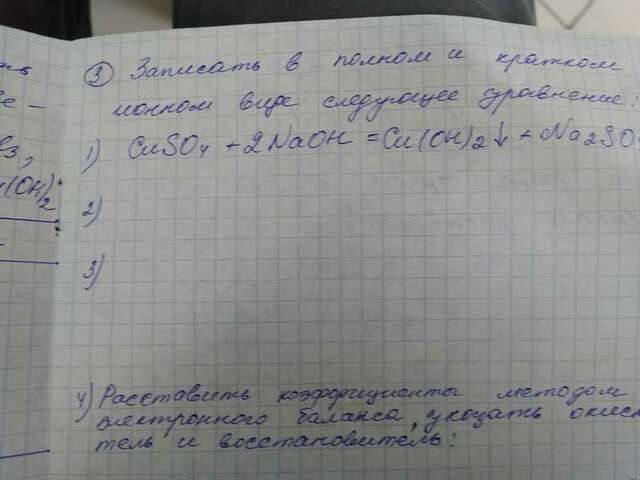 ③ Записать в полном и кратком
ионном виде следующее уравнение:
1) CuSO4 + 2NaOH = Cu(OH)2↓ + Na2SO
2)
3)
4) Расставить коэффициенты методом
электронного баланса, указать окисл
тель и восстановитель:
(OH)2